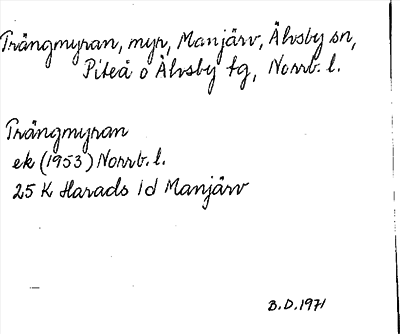 Trängmyran, myr, Manjärv, Älvsby sn,
Piteå o Älvsby tg, Norrb. l.
Trängmyran
ek (1953) Norrb. l.
25 K Harads 1d Manjärv
B.D. 1971